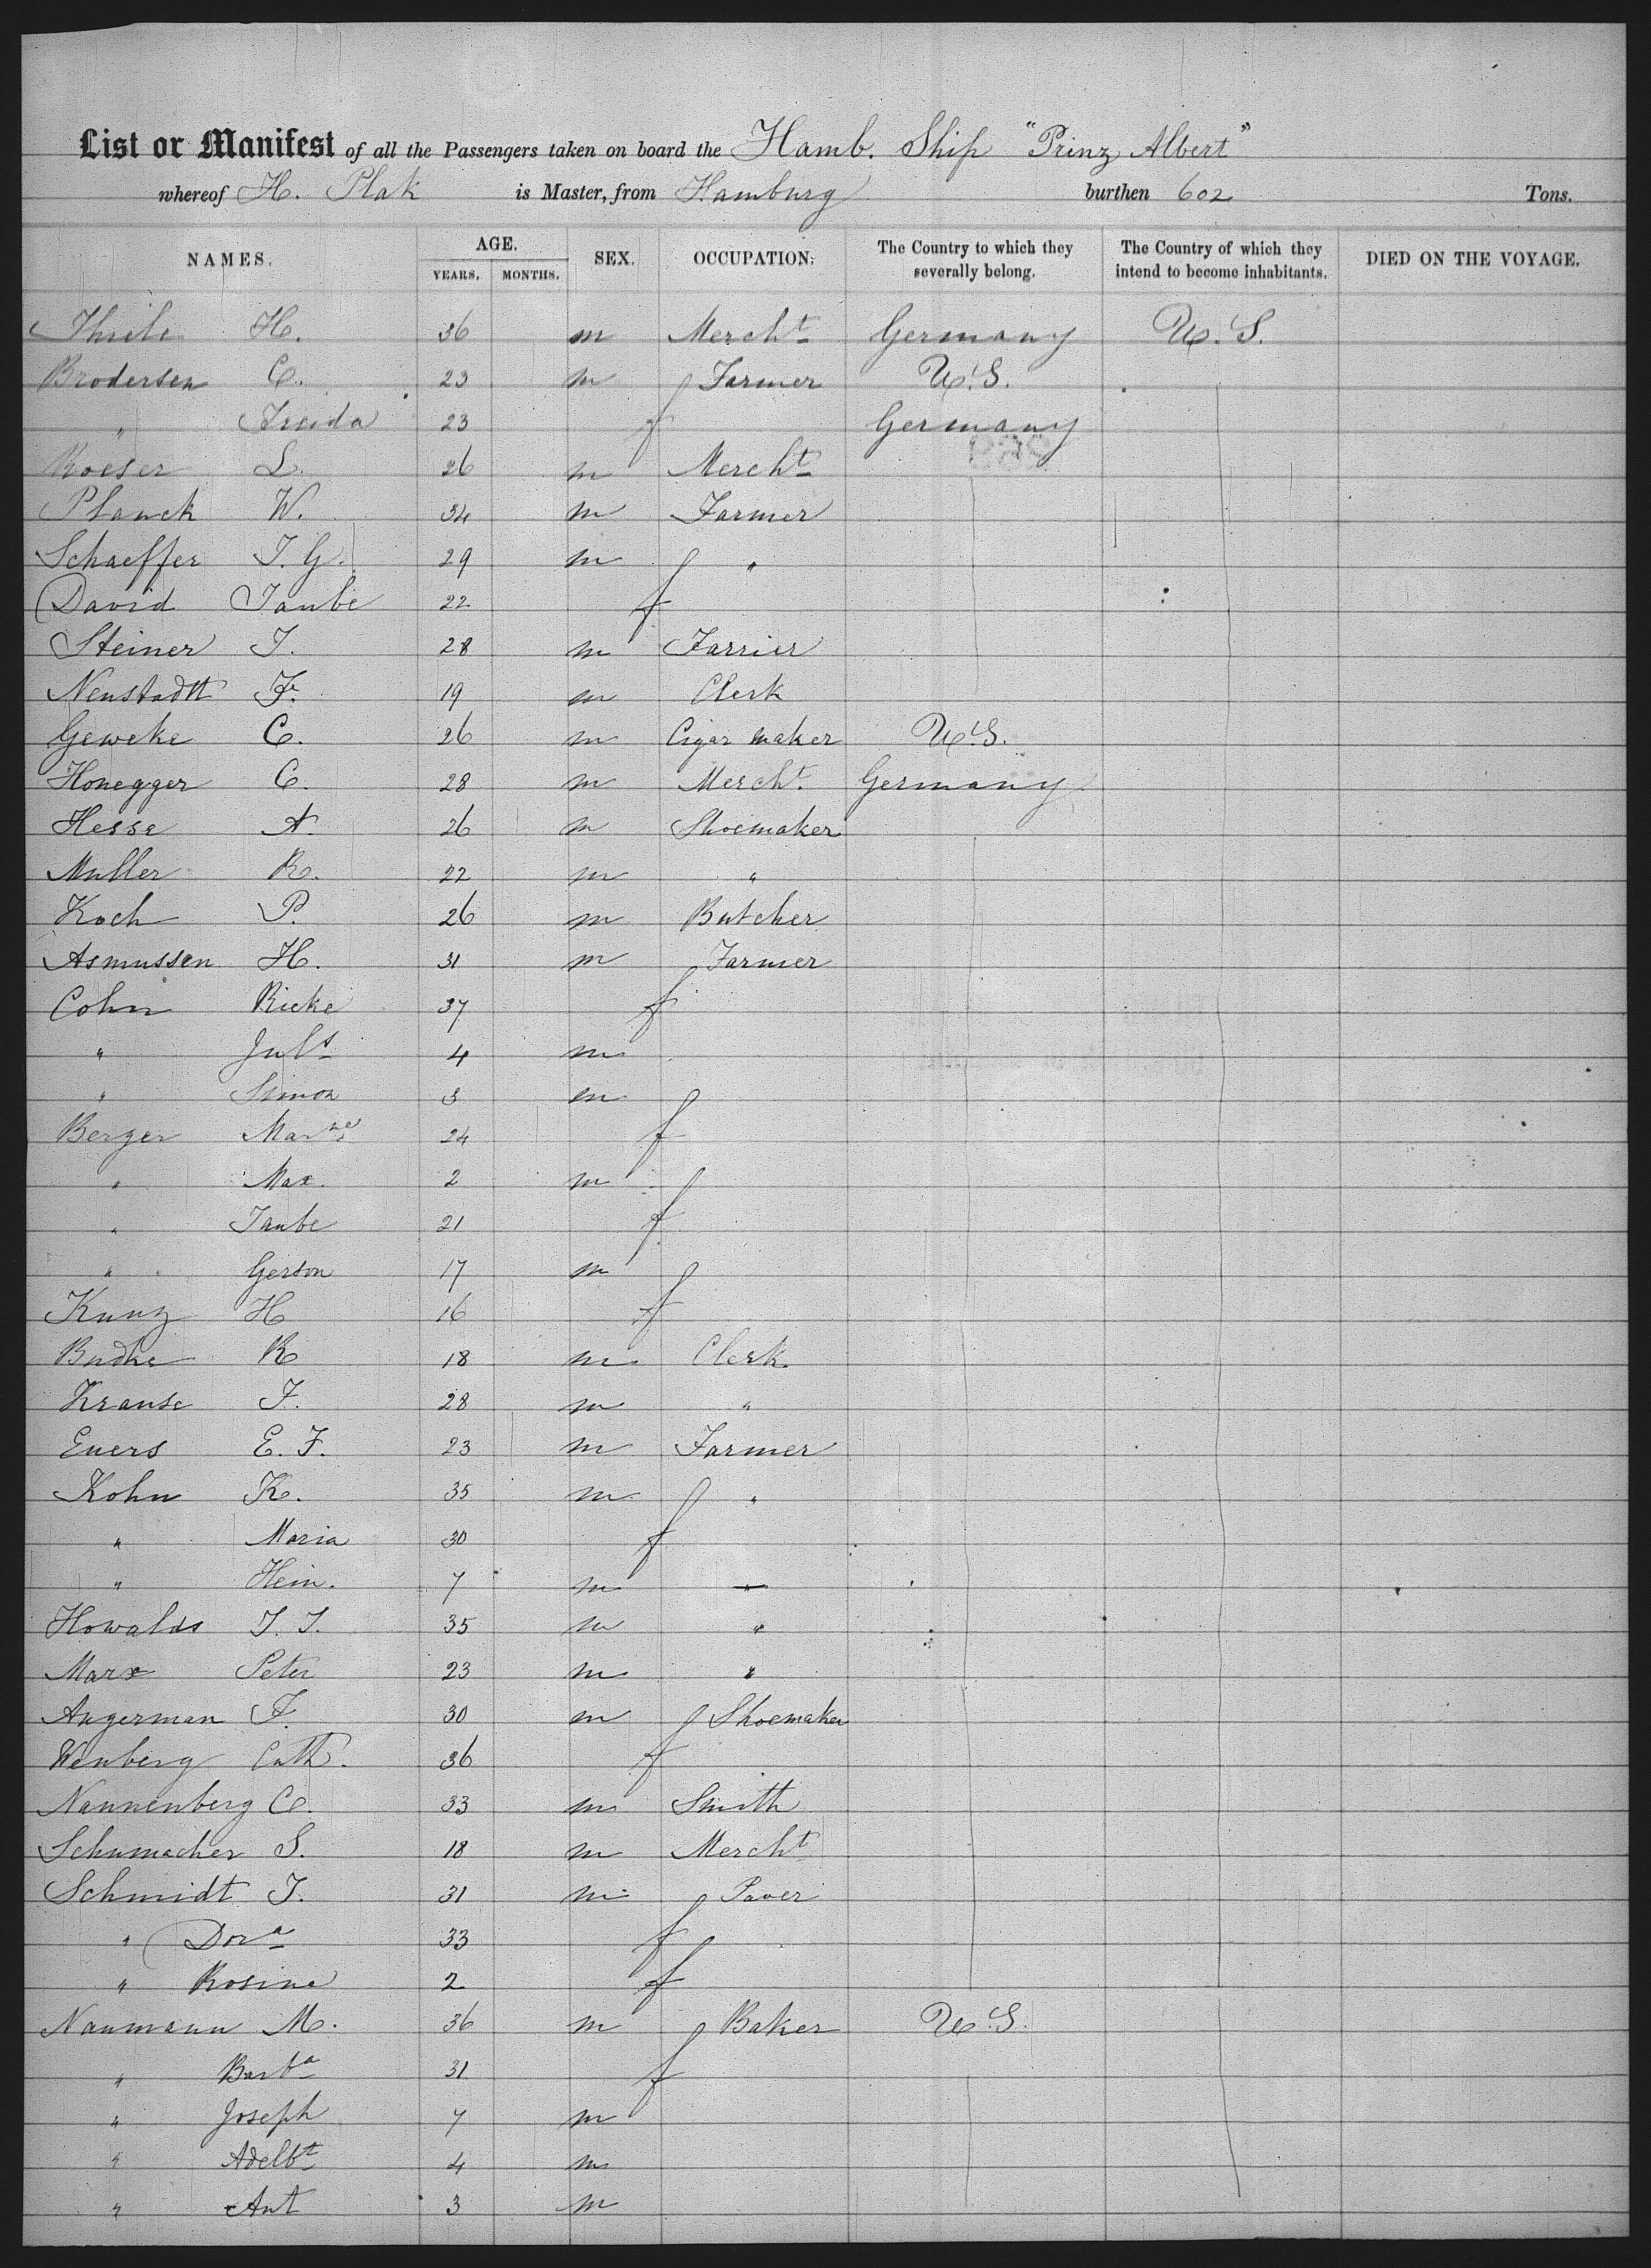 List or Manifest of all the Passengers taken on board the Hamb. Ship "Prinz Albert"
whereof H. Plak is Master, from Hamburg burthen 602 Tons.
NAMES. AGE. YEARS. MONTHS. SEX. OCCUPATION. The Country to which they severally belong. The Country of which they intend to become inhabitants. DIED ON THE VOYAGE.
Thiele H. 36 m Mercht Germany U.S.
Brodersen C. 23 m Farmer U.S.
" Frieda 23 f Germany
Roeser L. 26 m Mercht
Planck W. 34 m Farmer
Schaeffer J. G. 29 m "
David Taube 22 f
Steiner J. 28 m Farrier
Neustadtt F. 19 m Clerk
Geweke C. 26 m Cigar maker U.S.
Honegger C. 28 m Mercht. Germany
Hesse A. 26 m Shoemaker
Muller R. 22 m "
Koch P. 26 m Butcher
Asmussen H. 31 m Farmer
Cohn Rieke 37 f
" Juls 4 m
" Simon 3 m
Berger 24 f
" Max. 2 m
" Taube 21 f
" Gerson 17 m
Kunz H 16 f
Budke R 18 m Clerk
Krause F. 28 m "
Evers E. F. 23 m Farmer
Kohn K. 35 m "
" Maria 30 f
" Hein. 7 m —
Howalds J. J. 35 m "
Marx Peter 23 m "
Angerman F. 30 m Shoemaker
Wenberg Cath. 36 f
Nannenberg C. 33 m Smith
Schumacher S. 18 m Mercht
Schmidt J. 31 m Paver
" Dora 33 f
" Rosine 2 f
Naumann M. 36 m Baker U.S.
" Barba 31 f
" Joseph 7 m
" Adelbt 4 m
" Ant 3 m